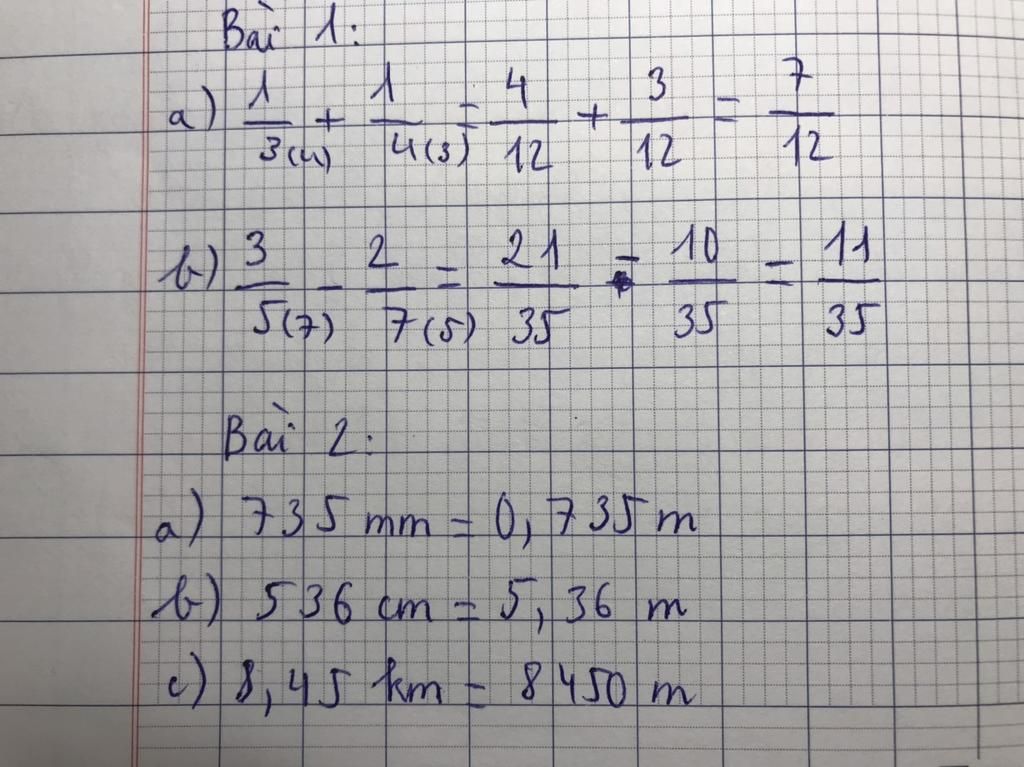 Bài 1:
a) 1/3(4) + 1/4(3) = 4/12 + 3/12 = 7/12
b) 3/5(7) - 2/7(5) = 21/35 - 10/35 = 11/35
Bài 2:
a) 735 mm = 0,735 m
b) 536 cm = 5,36 m
c) 8,45 km = 8450 m